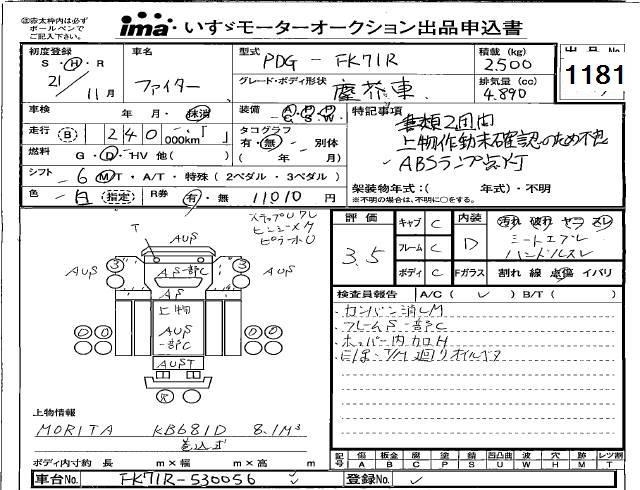 ㊟赤太枠内は必ず
ボールペンで
ご記入下さい。
ima いすゞモーターオークション出品申込書
初度登録 S・H・R 21年 11月
車名 ファイター
型式 PDG - FK71R
積載 (kg) 2500
出品No
1181
グレード・ボディ形状 塵芥車
排気量 (cc) 4.890
車検 年・月・抹消
装備 A・P・P C・S・W
特記事項
書類2週間
上物作動未確認のため不患
ABSランプ点灯
走行 B 1 240 000km
タコグラフ 有・無 別体
( 年/ 月)
燃料 G・D・HV 他( )
シフト 6 M T・A/T・特殊 (2ペダル・3ペダル)
架装物年式:( 年式)・不明
※不明の場合は、不明に〇をする。
色 白 (指定) R券 有・無 11010 円
ステップU クレ
ピラーホU
T
AUS
3 3
AUS AUS
AS一部C
AS
上物
AUS
一部C
AUST
R
評価 3.5
キャブ C
フレーム C
ボディ C
内装 D
汚れ 破れ ヤラ スレ
シートエブレ
ハンドルスレ
Fガラス 割れ 線 点傷 イバリ
検査員報告 A/C( ✓ ) B/T( )
カンバン消しM
フレームS一部C
ホッパー内カロH
T/M廻りオイル
上物情報
MORITA KB681D 8.1M³
巻込式
ボディ内寸約 長 m×幅 m×高 m
記号 傷A 板金B 腐C 塗P 錆S 凹凸曲U 波W 穴H 跡M レツ割T
車台No. FK71R-530056
登録No.